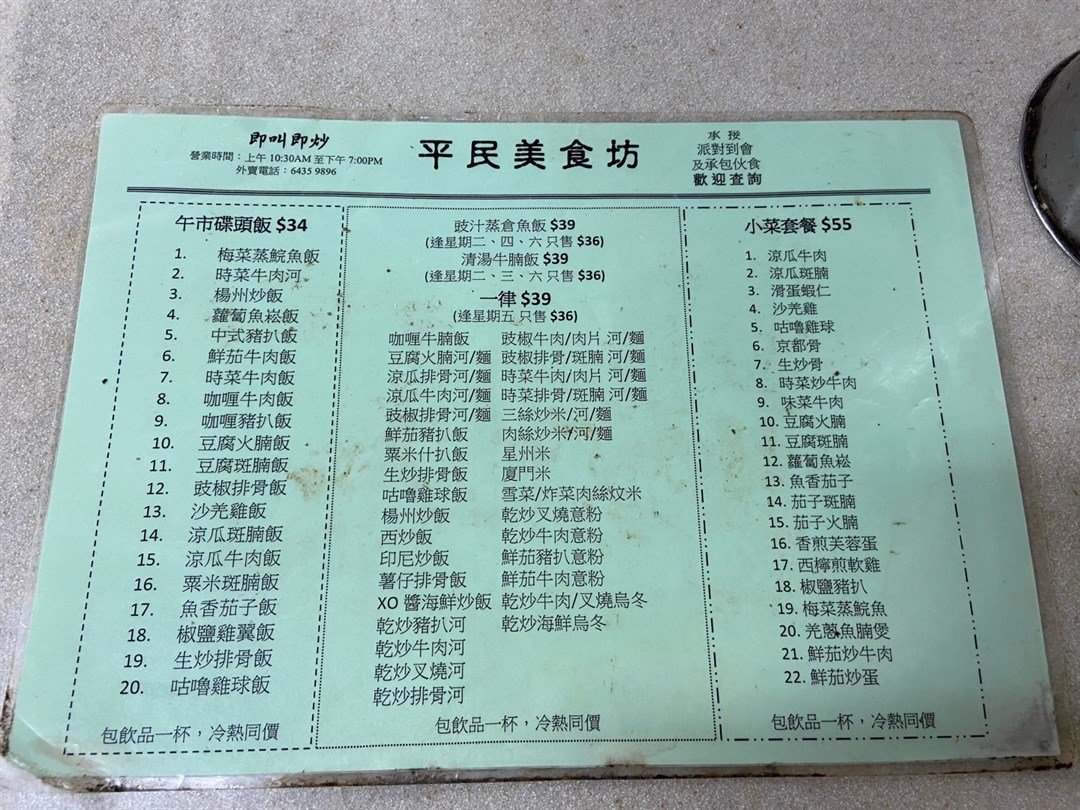 即叫即炒
營業時間：上午 10:30AM 至下午 7:00PM
外賣電話：6435 9896
平民美食坊
承接
派對到會
及承包伙食
歡迎查詢
午市碟頭飯 $34
1. 梅菜蒸鯇魚飯
2. 時菜牛肉河
3. 楊州炒飯
4. 蘿蔔魚崧飯
5. 中式豬扒飯
6. 鮮茄牛肉飯
7. 時菜牛肉飯
8. 咖喱牛肉飯
9. 咖喱豬扒飯
10. 豆腐火腩飯
11. 豆腐斑腩飯
12. 豉椒排骨飯
13. 沙羌雞飯
14. 涼瓜斑腩飯
15. 涼瓜牛肉飯
16. 粟米斑腩飯
17. 魚香茄子飯
18. 椒鹽雞翼飯
19. 生炒排骨飯
20. 咕嚕雞球飯
包飲品一杯，冷熱同價
豉汁蒸倉魚飯 $39
(逢星期二、四、六 只售 $36)
清湯牛腩飯 $39
(逢星期二、三、六 只售 $36)
一律 $39
(逢星期五 只售 $36)
咖喱牛腩飯
豆腐火腩河/麵
涼瓜排骨河/麵
涼瓜牛肉河/麵
豉椒排骨河/麵
鮮茄豬扒飯
粟米什扒飯
生炒排骨飯
咕嚕雞球飯
楊州炒飯
西炒飯
印尼炒飯
薯仔排骨飯
XO 醬海鮮炒飯
乾炒豬扒河
乾炒牛肉河
乾炒叉燒河
乾炒排骨河
豉椒牛肉/肉片 河/麵
豉椒排骨/斑腩 河/麵
時菜牛肉/肉片 河/麵
時菜排骨/斑腩 河/麵
三絲炒米/河/麵
肉絲炒米/河/麵
星州米
廈門米
雪菜/炸菜肉絲炆米
乾炒叉燒意粉
乾炒牛肉意粉
鮮茄豬扒意粉
鮮茄牛肉意粉
乾炒牛肉/叉燒烏冬
乾炒海鮮烏冬
包飲品一杯，冷熱同價
小菜套餐 $55
1. 涼瓜牛肉
2. 涼瓜斑腩
3. 滑蛋蝦仁
4. 沙羌雞
5. 咕嚕雞球
6. 京都骨
7. 生炒骨
8. 時菜炒牛肉
9. 味菜牛肉
10. 豆腐火腩
11. 豆腐斑腩
12. 蘿蔔魚崧
13. 魚香茄子
14. 茄子斑腩
15. 茄子火腩
16. 香煎芙蓉蛋
17. 西檸煎軟雞
18. 椒鹽豬扒
19. 梅菜蒸鯇魚
20. 羌蔥魚腩煲
21. 鮮茄炒牛肉
22. 鮮茄炒蛋
包飲品一杯，冷熱同價